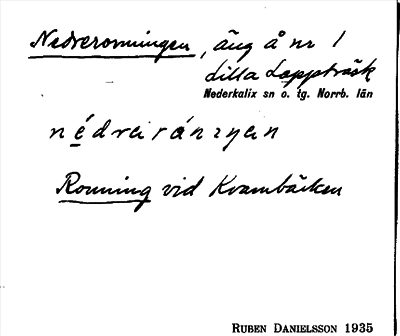 Nedreronningen, äng å nr 1
Lilla Lappträsk
Nederkalix sn o. tg. Norrb. län
nédrerȧnɩŋen
Ronning vid Kvarnbäcken
RUBEN DANIELSSON 1935